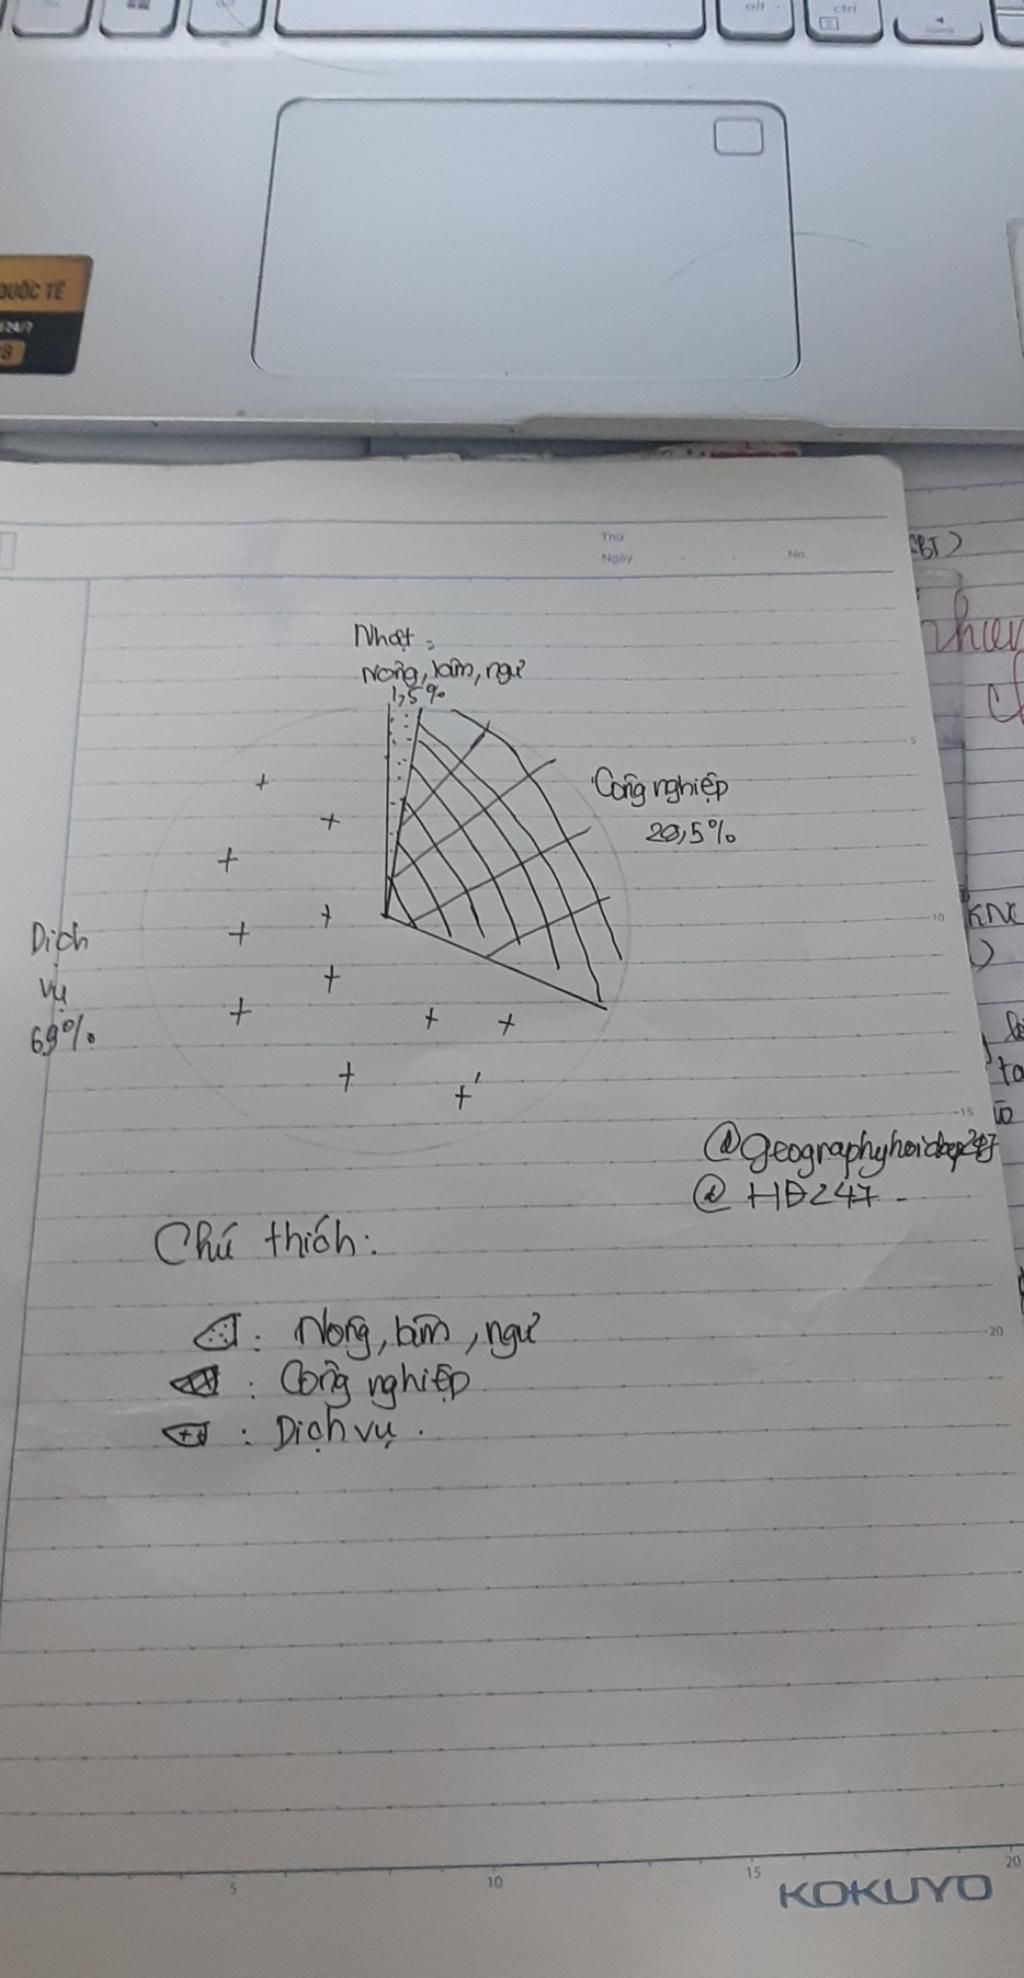 alt
ctrl
home
QUỐC TẾ
24/7
Thứ
Ngày
No.
Nhật:
Nông, lâm, ngư
1,5%
Công nghiệp
29,5%
Dịch
vụ
69%
@geographyhoidap247
@HĐ247
Chú thích:
: Nông, lâm, ngư
: Công nghiệp
: Dịch vụ.
5
10
15
20
5
10
15
20
KOKUYO